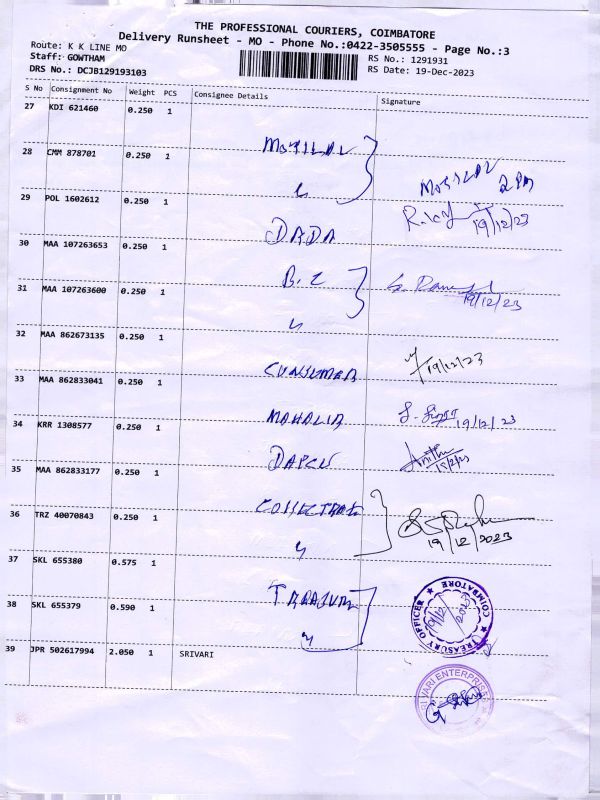 THE PROFESSIONAL COURIERS, COIMBATORE
Delivery Runsheet - MO - Phone No.:0422-3505555 - Page No.:3
Route: K K LINE MO
Staff: GOWTHAM
DRS No.: DCJB129193103
RS No.: 1291931
RS Date: 19-Dec-2023
S No Consignment No Weight PCS Consignee Details Signature
27 KDI 621460 0.250 1 MOTILAL
28 CMM 878701 0.250 1 MOTILAL 2 PM
29 POL 1602612 0.250 1 DADA 19/12/23
30 MAA 107263653 0.250 1
31 MAA 107263600 0.250 1 19/12/23
32 MAA 862673135 0.250 1 CUNSUMER 19/12/23
33 MAA 862833041 0.250 1 19/12/23
34 KRR 1308577 0.250 1
35 MAA 862833177 0.250 1
36 TRZ 40070843 0.250 1 19/12/2023
37 SKL 655380 0.575 1
38 SKL 655379 0.590 1 TREASURY OFFICER ★ COIMBATORE ★ 19/12/2023
39 JPR 502617994 2.050 1 SRIVARI
SRI VARI ENTERPRISES